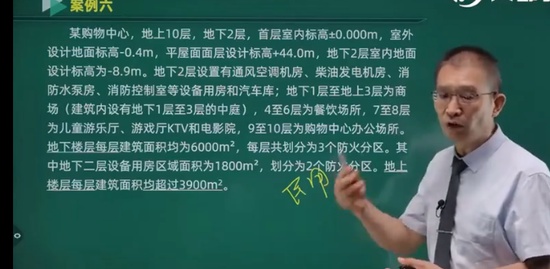 案例六
某购物中心，地上10层，地下2层，首层室内标高±0.000m，室外
设计地面标高-0.4m，平屋面面层设计标高+44.0m，地下2层室内地面
设计标高为-8.9m。地下2层设置有通风空调机房、柴油发电机房、消
防水泵房、消防控制室等设备用房和汽车库；地下1层至地上3层为商
场（建筑内设有地下1层至3层的中庭），4至6层为餐饮场所，7至8层
为儿童游乐厅、游戏厅KTV和电影院，9至10层为购物中心办公场所。
地下楼层每层建筑面积均为6000m²，每层共划分为3个防火分区。其
中地下二层设备用房区域面积为1800m²，划分为2个防火分区。地上
楼层每层建筑面积均超过3900m²。